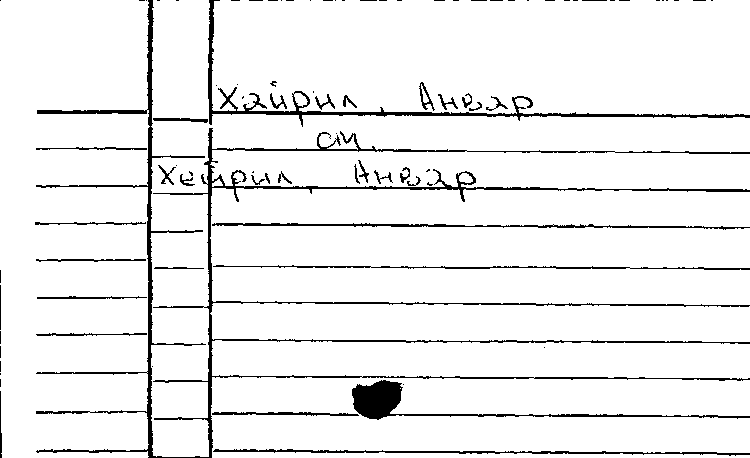 Хайрил, Анвар
см.
Хейрил, Анвар